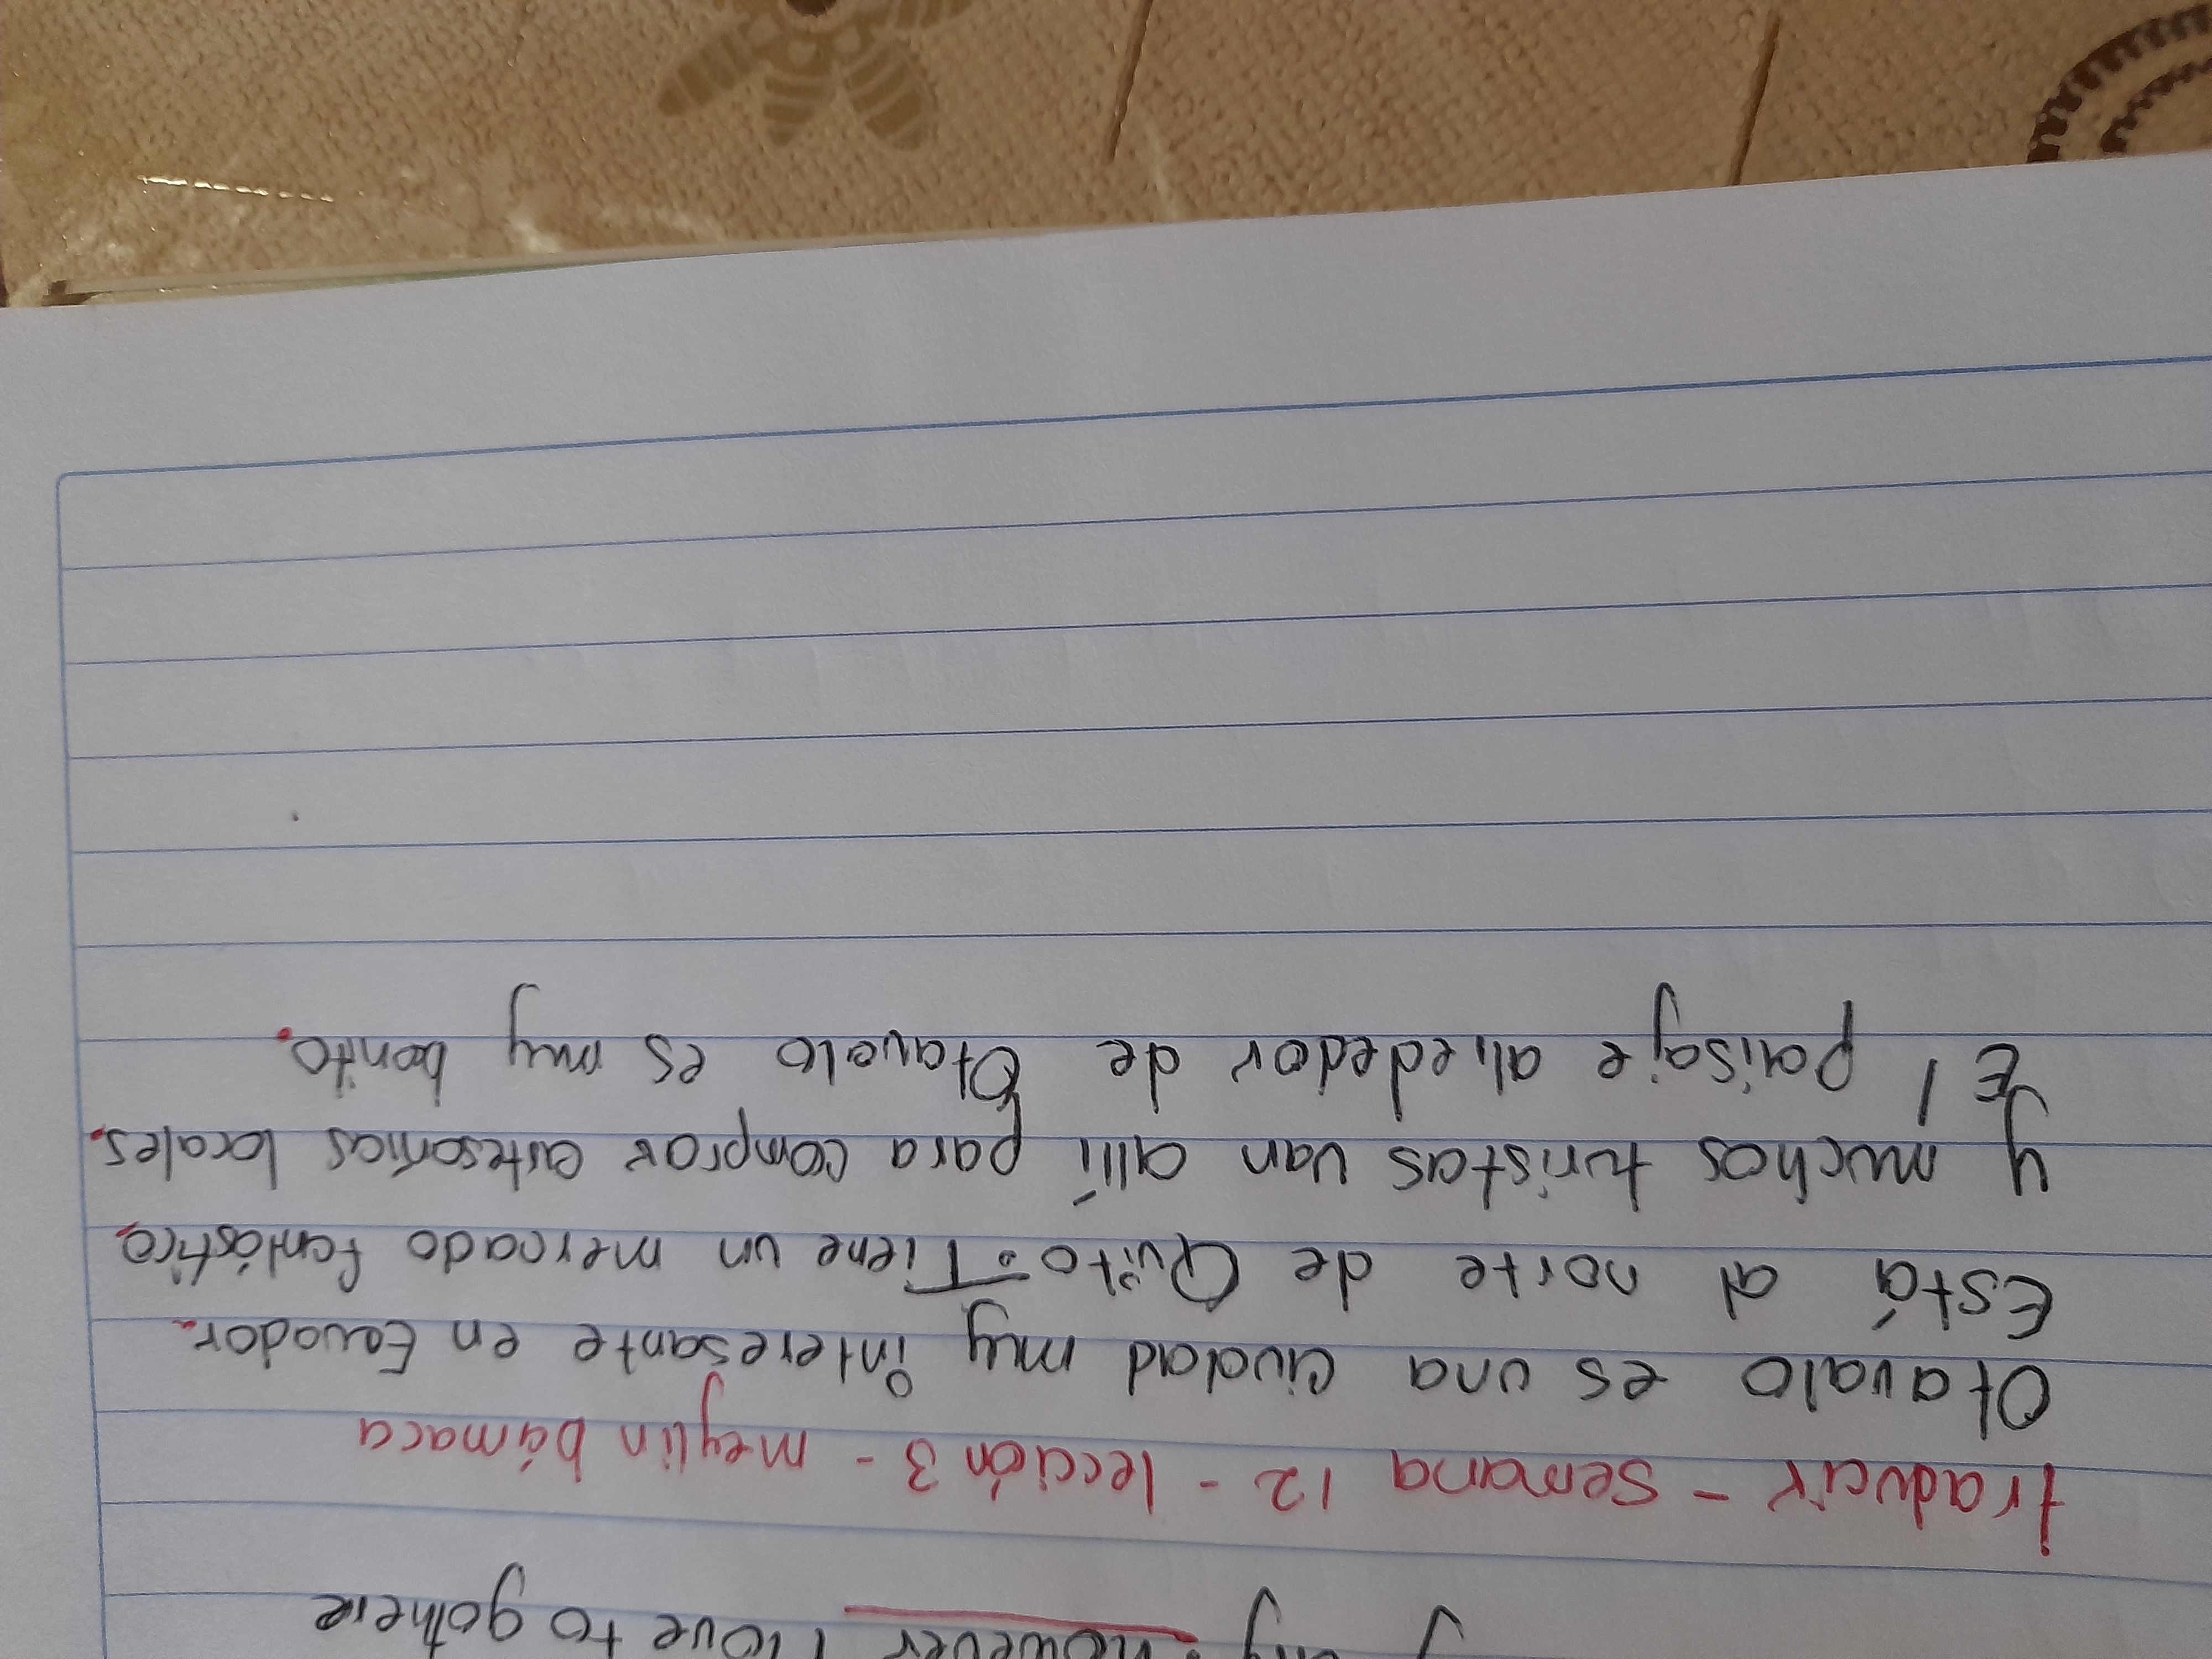 however I love to gothere
traducir - Semana 12 - lección 3 - meylin bámaca
Otavalo es una ciudad muy interesante en Ecuador.
Está al norte de Quito. Tiene un mercado fantástico,
y muchos turistas van allí para comprar artesanías locales.
El paisaje alrededor de Otavalo es muy bonito.